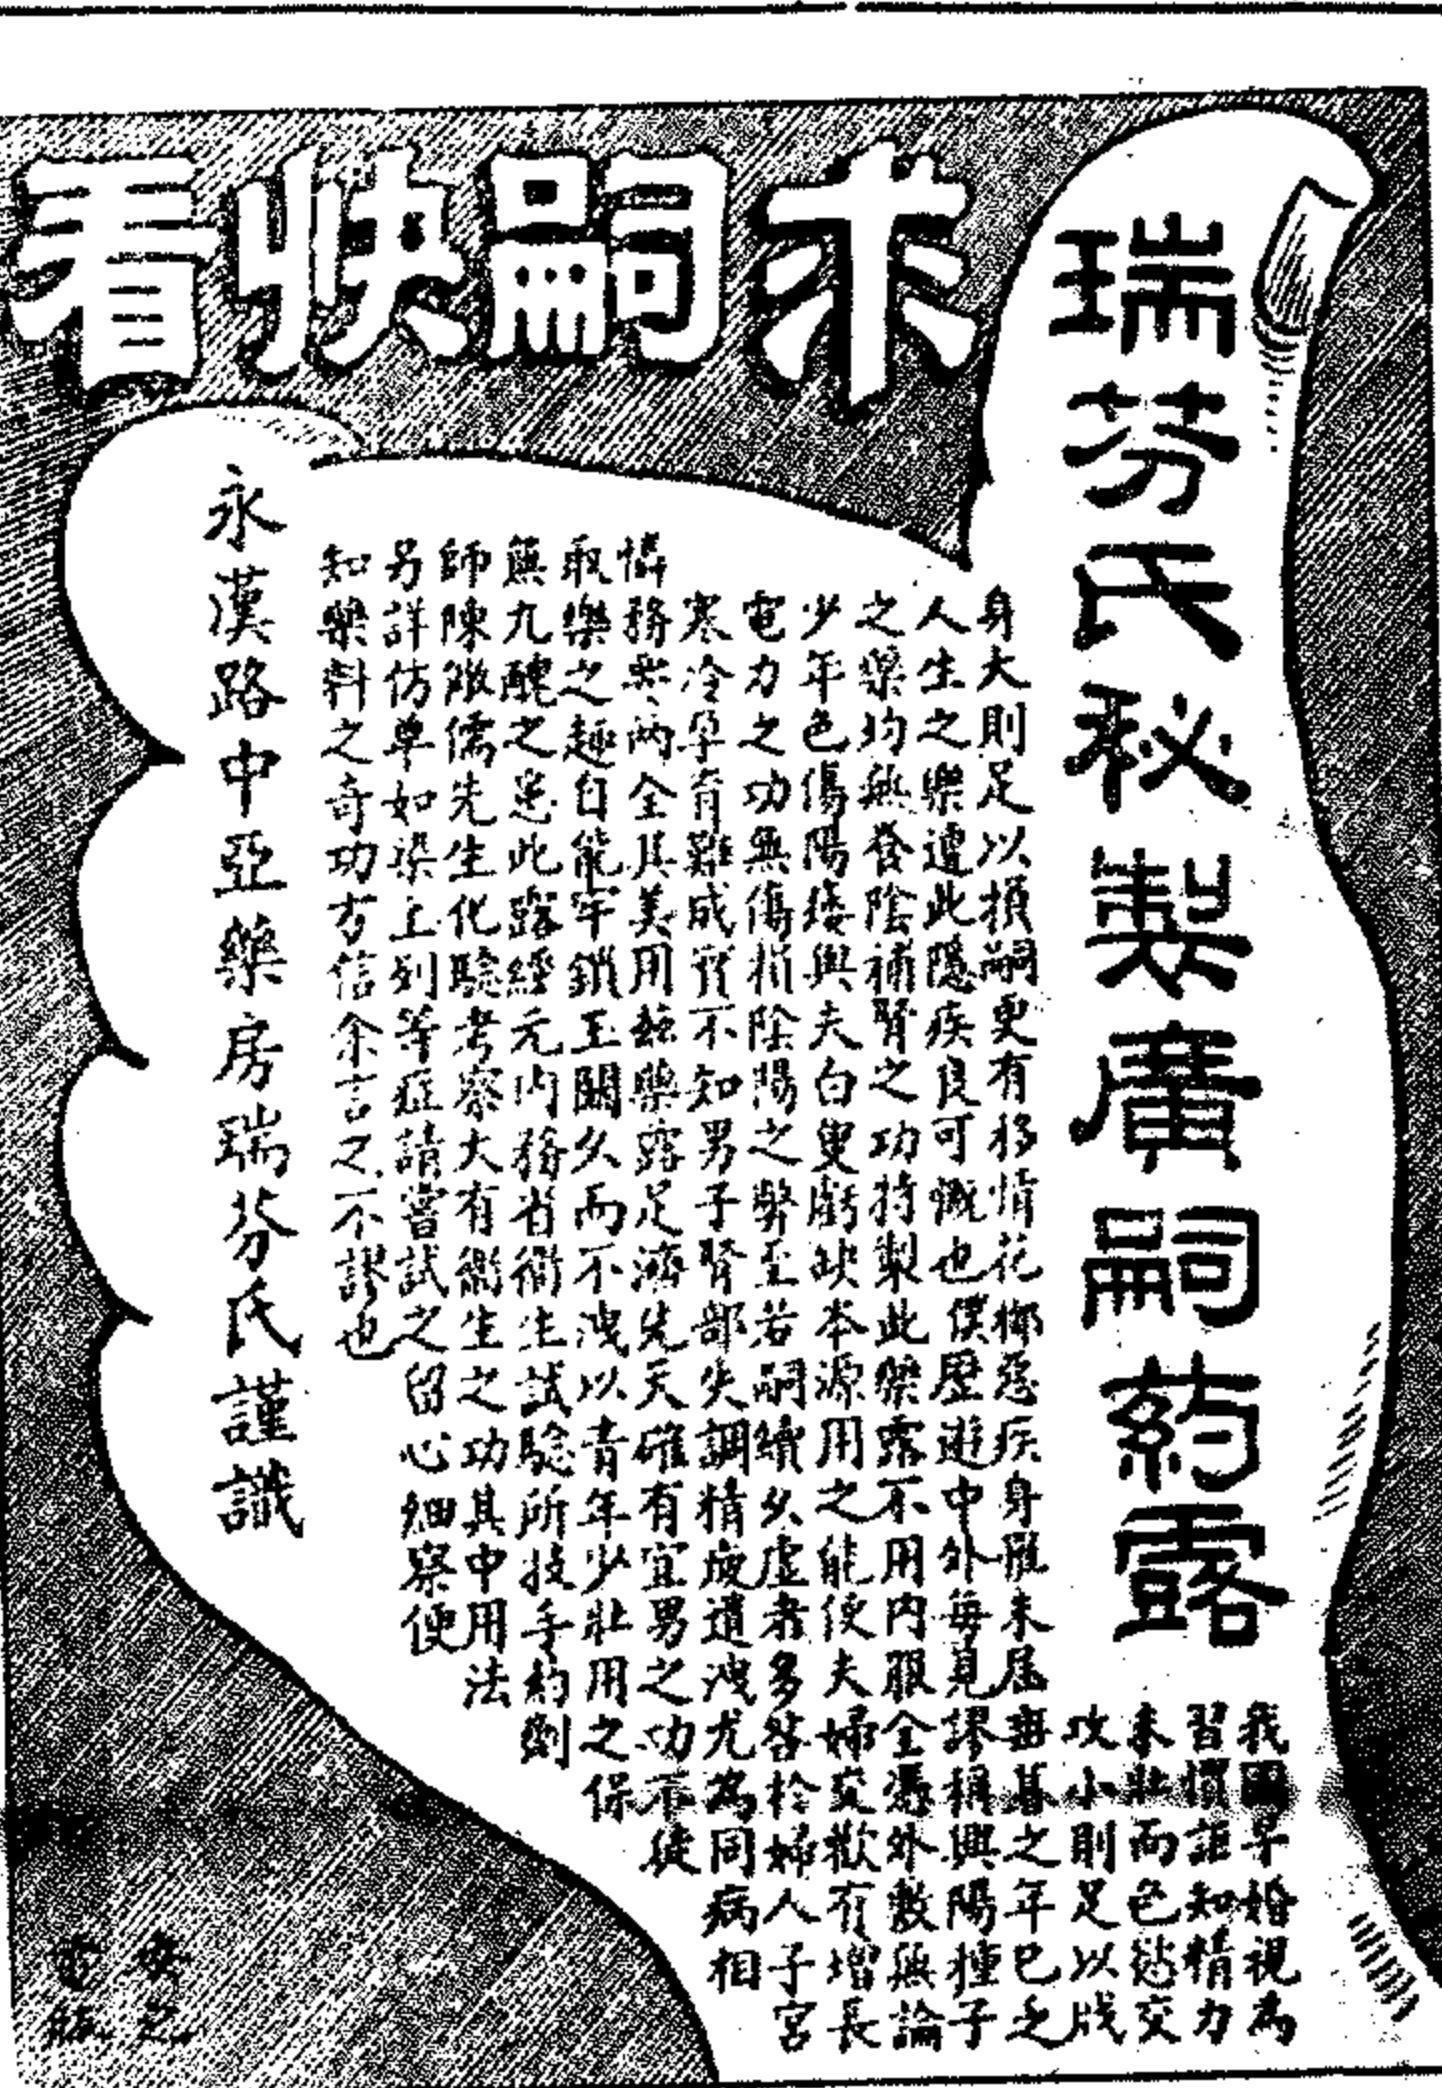 求嗣快看
瑞芬氏秘製廣嗣葯露
我國早婚視為
習慣詎知精力
未壯而色慾交
攻小則足以戕
身大則足以損嗣更有移情花柳惡疾身罹未屆壽暮之年已乏
人生之樂遭此隱疾良可慨也僕歷遊中外每見謬稱興陽種子
之藥均無發陰補腎之功特製此藥露不用内服全憑外敷無論
少年色傷陽痿與夫白叟虧缺本源用之能使夫婦交歡有增長
電力之功無傷損陰陽之弊至若嗣續久虛者多咎於婦人子宮
寒冷孕育難成實不知男子腎部失調精疲遺洩尤為同病相
憐務要兩全其美用茲藥露足濟先天確有宜男之功不徒
取樂之趣自能牢鎖玉關久而不洩以青年少壯用之保
無九醜之患此露經元内務省衛生試驗所技手約劑
師陳繳儒先生化驗考察大有衛生之功其中用法
另詳仿單如染上列等症請嘗試之留心細察便
知藥料之奇功方信余言之不謬也
永漢路中亞藥房瑞芬氏謹識